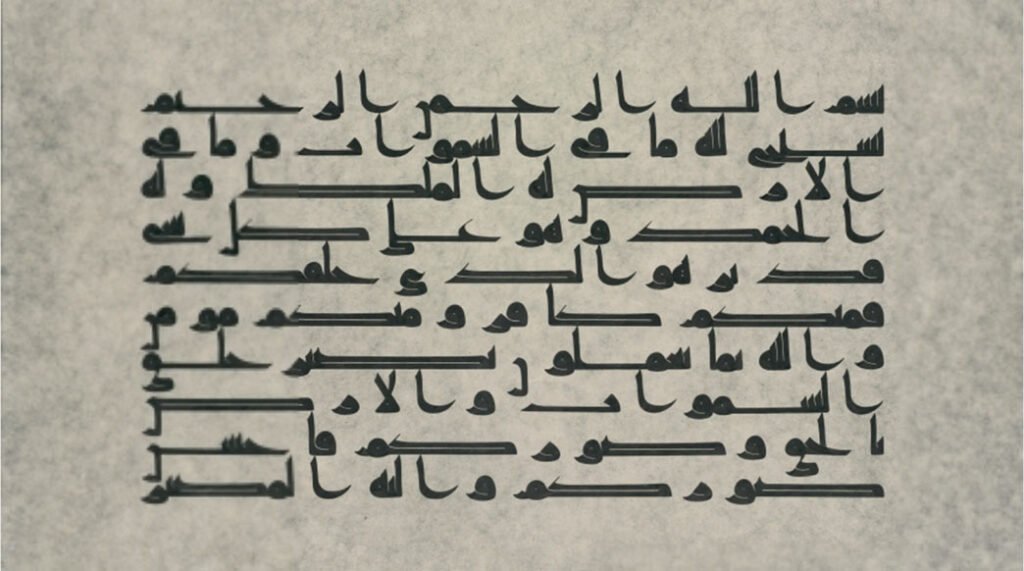 بسم الله الرحمن الرحيم
يسبح لله ما في السموات وما في
الارض له الملك وله
الحمد وهو على كل شي
قدير هو الذي خلقكم
فمنكم كافر ومنكم مومن
والله بما تعملون بصير خلق
السموات والارض
بالحق وصوركم فاحسن
صوركم واليه المصير